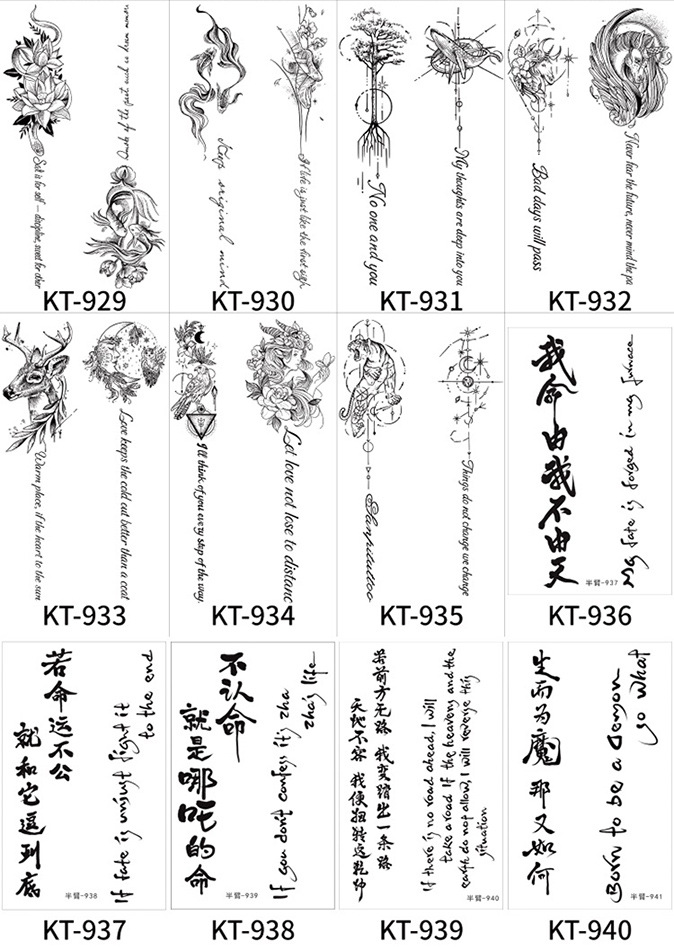 Salt is for self — discipline, sweet for other
KT-929
Keep original mind
If life is just like the first sigh
KT-930
No one and you
My thoughts are deep into you
KT-931
Bad days will pass
Never fear the future, never mind the pa
KT-932
Warm place, if the heart to the sun
Love keeps the cold out better than a coat
KT-933
I'll think of you every step of the way.
Let love not lose to distanc
KT-934
Things do not change we change
KT-935
我命由我不由天
My fate is forged in my furnace
半臂-937
KT-936
若命运不公
就和它逗到底
If fate is unjust fight it
to the end
半臂-938
KT-937
不认命
就是哪吒的命
If you don't confess it's zha
zha's life
半臂-939
KT-938
若前方无路 我变踏出一条路
天地不容 我便扭转这乾坤
If there is no road ahead, I will
take a road If the heavens and the
earth do not allow, I will reverse this
situation
半臂-940
KT-939
生而为魔 那又如何
Born to be a Demon
so what
半臂-941
KT-940